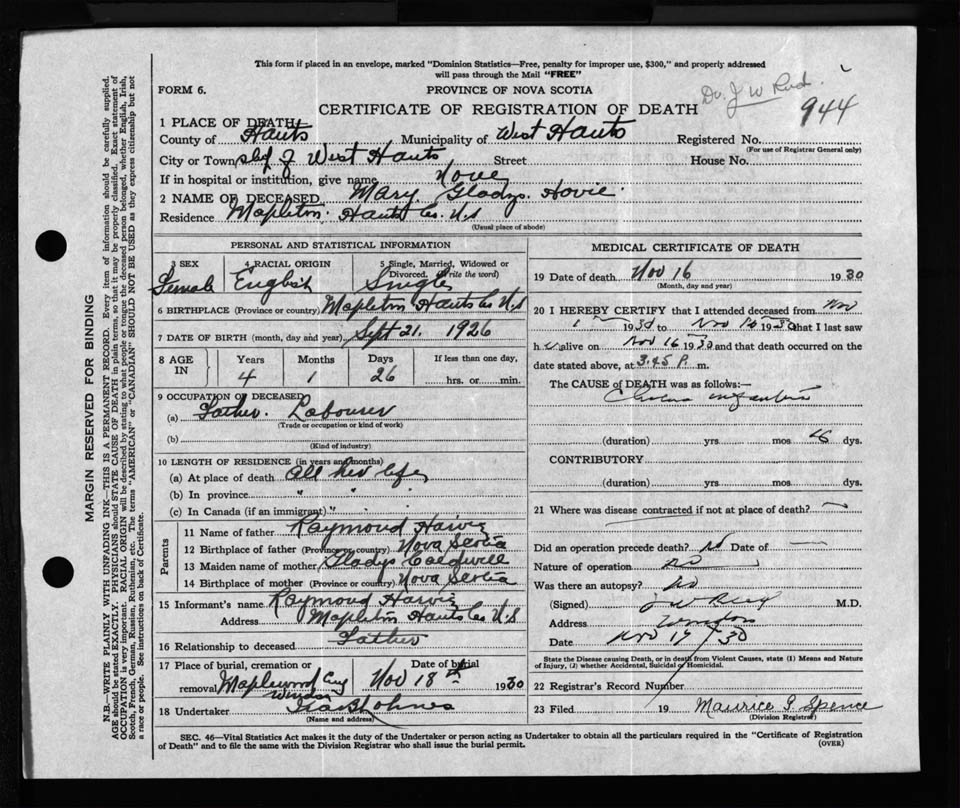 This form if placed in an envelope, marked "Dominion Statistics—Free, penalty for improper use, $300," and properly addressed
will pass through the Mail "FREE"
FORM 6. PROVINCE OF NOVA SCOTIA
Dr. J W Reid
944
CERTIFICATE OF REGISTRATION OF DEATH
1 PLACE OF DEATH
County of Hants Municipality of West Hants Registered No.
(For use of Registrar General only)
City or Town of West Hants Street House No.
If in hospital or institution, give name None
2 NAME OF DECEASED Mary Gladys Hovie
Residence Mapleton Hants Co. N.S
(Usual place of abode)
PERSONAL AND STATISTICAL INFORMATION
3 SEX 4 RACIAL ORIGIN 5 Single, Married, Widowed or
Divorced. (Write the word)
Female English Single
6 BIRTHPLACE (Province or country) Mapleton Hants Co N.S
7 DATE OF BIRTH (month, day and year) Sept 21. 1926
8 AGE IN Years Months Days If less than one day,
4 1 26 hrs. or min.
9 OCCUPATION OF DECEASED
(a) Father. Labourer
(Trade or occupation or kind of work)
(b)
(Kind of industry)
10 LENGTH OF RESIDENCE (in years and months)
(a) At place of death all her life
(b) In province " " "
(c) In Canada (if an immigrant) " " "
Parents
11 Name of father Raymond Harvie
12 Birthplace of father (Province or country) Nova Scotia
13 Maiden name of mother Gladys Caldwell
14 Birthplace of mother (Province or country) Nova Scotia
15 Informant's name Raymond Harvie
Address Mapleton Hants Co N.S
16 Relationship to deceased Father
17 Place of burial, cremation or Date of burial
removal Maplewood Cmy Nov 18th 1930
Windsor
18 Undertaker
(Name and address)
MEDICAL CERTIFICATE OF DEATH
19 Date of death Nov 16 1930
(Month, day and year)
20 I HEREBY CERTIFY that I attended deceased from Nov
1930 to Nov 16 1930 that I last saw
h er alive on Nov 16 1930 and that death occurred on the
date stated above, at 3.45 P. m.
The CAUSE of DEATH was as follows:—
Cholera infantum
(duration) yrs. mos. dys.
CONTRIBUTORY
(duration) yrs. mos. dys.
21 Where was disease contracted if not at place of death?
Did an operation precede death? No Date of
Nature of operation no
Was there an autopsy? No
(Signed) J W Reid M.D.
Address Windsor
Date Nov 17/30
State the Disease causing Death, or in death from Violent Causes, state (1) Means and Nature
of Injury, (2) whether Accidental, Suicidal or Homicidal.
22 Registrar's Record Number
23 Filed 19 Maurice G. Spence
(Division Registrar)
SEC. 46—Vital Statistics Act makes it the duty of the Undertaker or person acting as Undertaker to obtain all the particulars required in the "Certificate of Registration
of Death" and to file the same with the Division Registrar who shall issue the burial permit. (OVER)
MARGIN RESERVED FOR BINDING
N.B.—WRITE PLAINLY WITH UNFADING INK—THIS IS A PERMANENT RECORD. Every item of information should be carefully supplied.
AGE should be stated EXACTLY. PHYSICIANS should STATE CAUSE OF DEATH in plain terms, so that it may be properly classified. Exact statement of
OCCUPATION is very important. RACIAL ORIGIN will be described by stating to what people or tongue the deceased person belonged, whether English, Irish,
Scotch, French, German, Russian, Ruthenian, etc. The terms "AMERICAN" or "CANADIAN" SHOULD NOT BE USED as they express citizenship but not
a race or people. See instructions on back of Certificate.